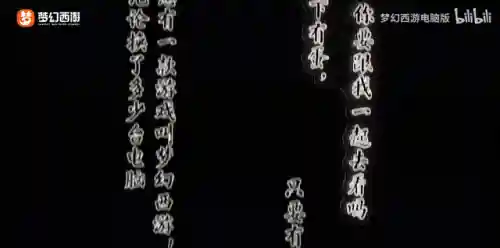 梦幻西游
梦幻西游电脑版
bilibili
你要跟我一起去看吗
下有雪，
只要有
有一款游戏叫梦幻西游，
论换了多少台电脑